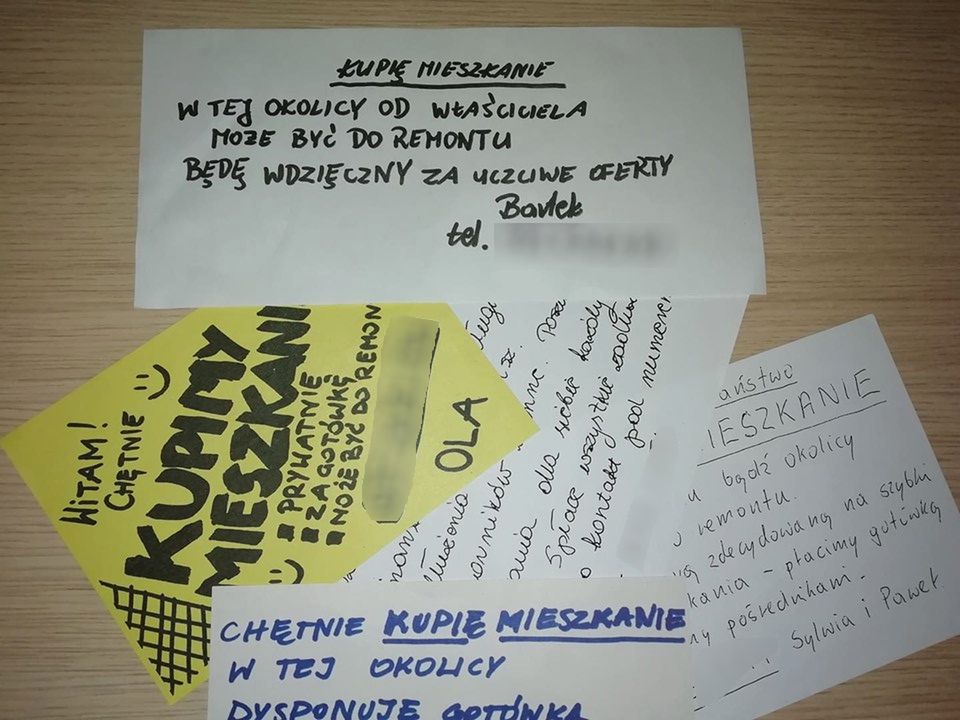 KUPIĘ MIESZKANIE
W TEJ OKOLICY OD WŁAŚCICIELA
MOŻE BYĆ DO REMONTU
BĘDĘ WDZIĘCZNY ZA UCZCIWE OFERTY
Bartek
tel.
WITAM!
CHĘTNIE
KUPIMY
MIESZKANI
PRYWATNIE
ZA GOTÓWKĘ
MOŻE BYĆ DO REMON
OLA
dla siebie każdy
Spłacę wszystkie zadłuż
kontakt pod numerem
aństwo
IESZKANIE
u bądź okolicy
remontu.
zdecydowaną na szybki
kania - płacimy gotówką
pośrednikami.
Sylwia i Paweł
CHĘTNIE KUPIĘ MIESZKANIE
W TEJ OKOLICY
DYSPONUJĘ GOTÓWKĄ